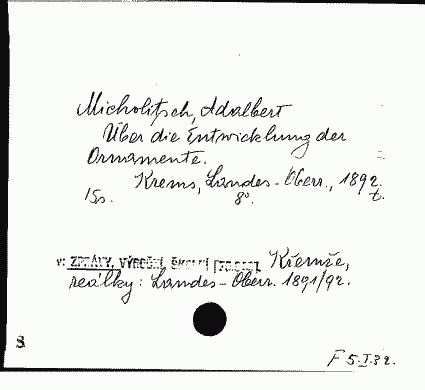 Micholitsch, Adalbert
Über die Entwicklung der
Ornamente.
Krems, Landes-Oberr., 1892.
15s. 8°. t.
v: ZPRÁVY, VÝROČNÍ, ŠKOLNÍ Křemže,
reálky: Landes-Oberr. 1891/92.
8
F 5.I.32.